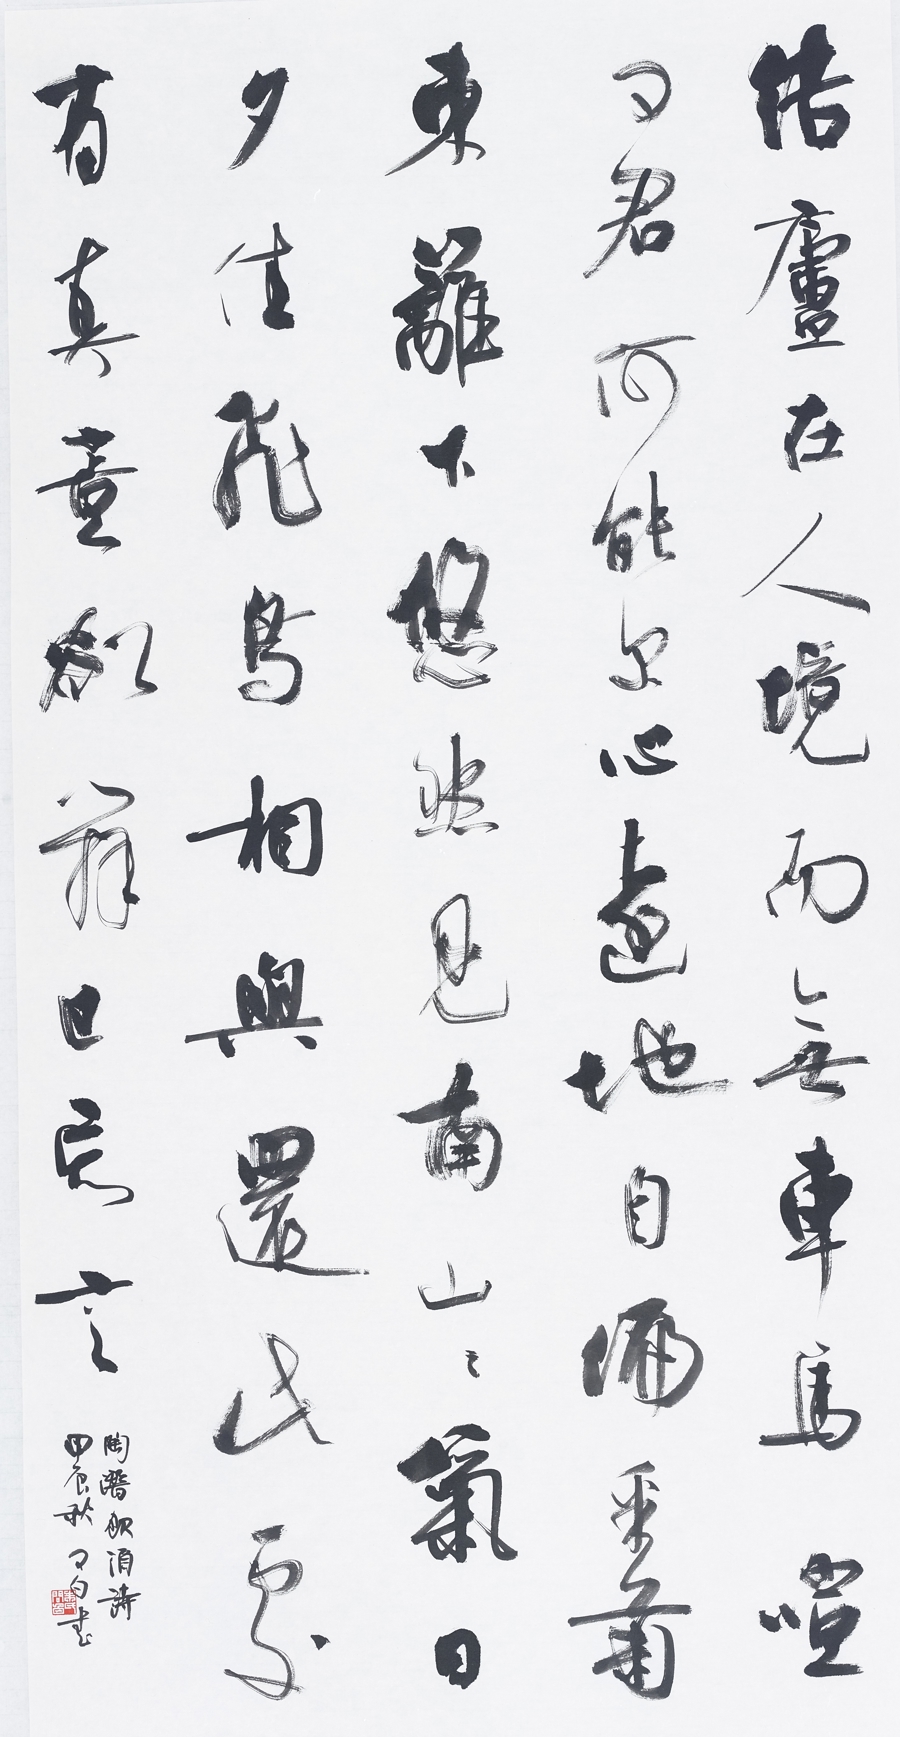 結廬在人境而無車馬喧
問君何能尔心遠地自偏采菊
東籬下悠然見南山〻氣日
夕佳飛鳥相與還此處
有真意欲辨已忘言
陶潛飲酒詩
甲辰秋問白書